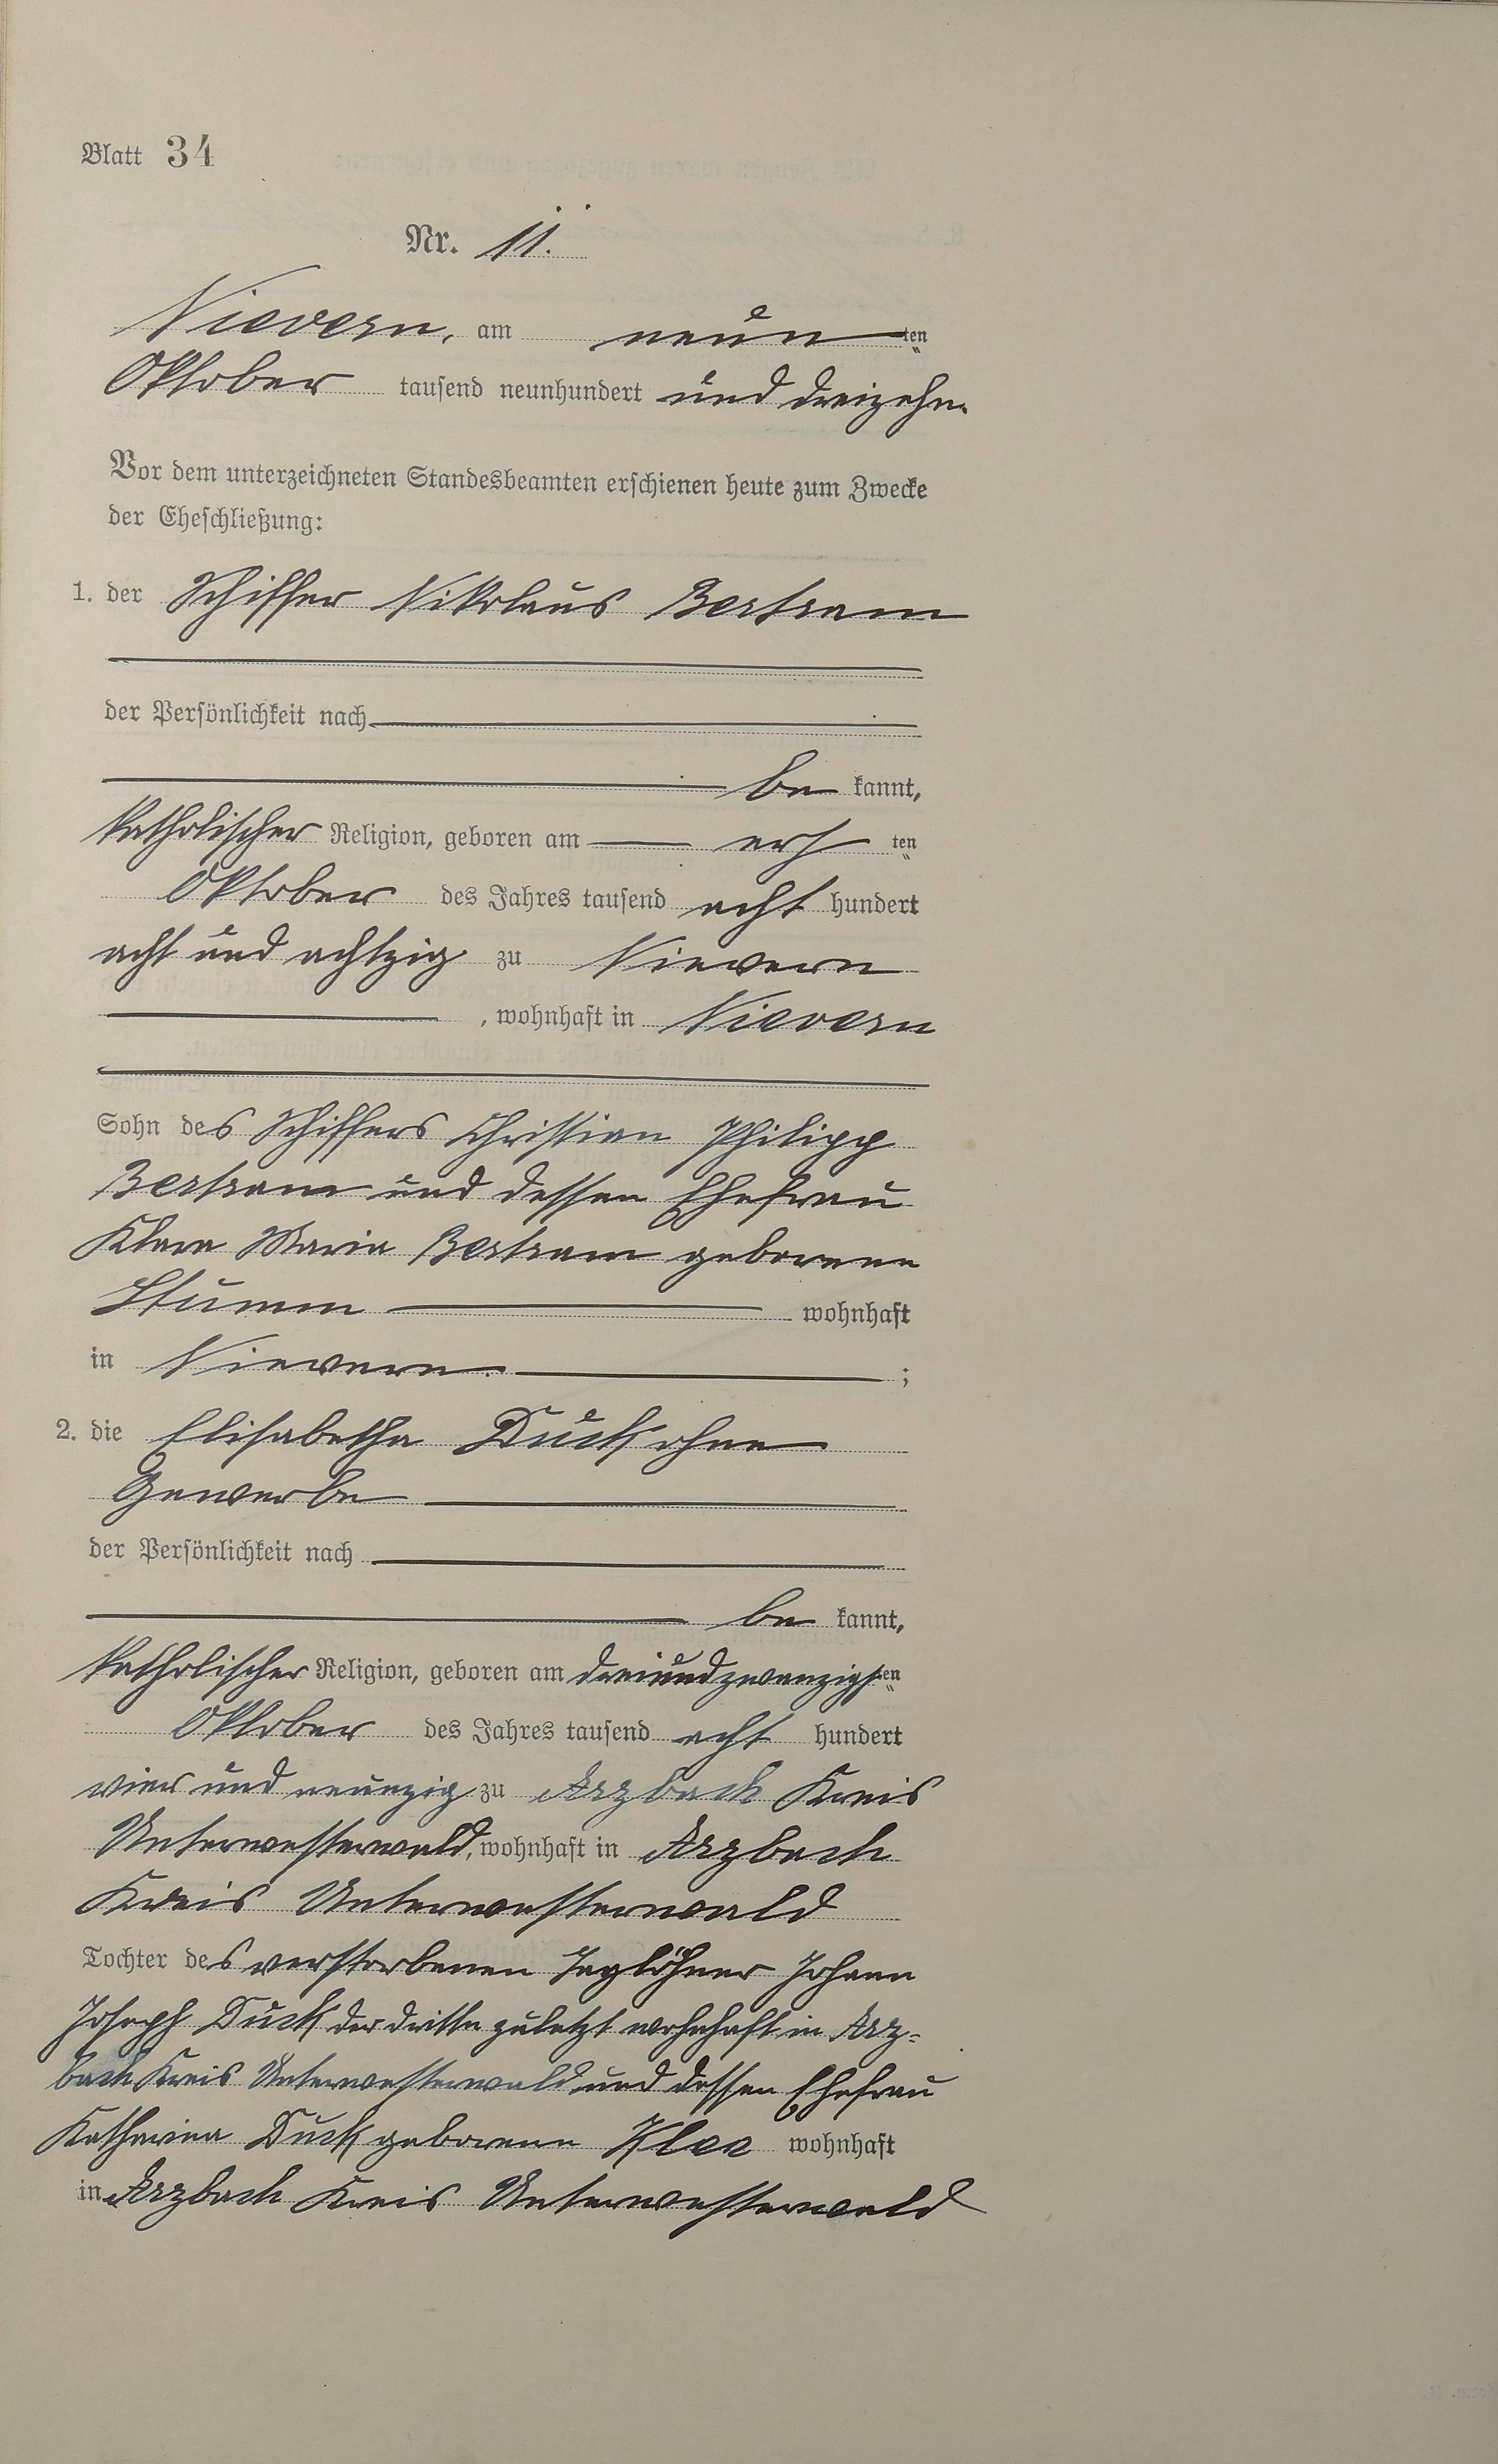 Blatt 34
Nr. 11.
Nievern, am neunten
Oktober tausend neunhundert und dreizehn.
Vor dem unterzeichneten Standesbeamten erschienen heute zum Zwecke
der Eheschließung:
1. der Schiffer Nikolaus Bertram
der Persönlichkeit nach
be kannt,
katholischer Religion, geboren am ersten
Oktober des Jahres tausend acht hundert
acht und achtzig zu Nievern
, wohnhaft in Nievern
Sohn des Schiffers Christian Philipp
Bertram und dessen Ehefrau
Klara Maria Bertram geborene
Stumm wohnhaft
in Nievern ;
2. die Elisabetha Duck ohne
Gewerbe
der Persönlichkeit nach
be kannt,
katholischer Religion, geboren am dreiundzwanzigsten
Oktober des Jahres tausend acht hundert
vier und neunzig zu Arzbach Kreis
Unterwesterwald, wohnhaft in Arzbach
Kreis Unterwesterwald
Tochter des verstorbenen Taglöhner Johann
Joseph Duck der dritte zuletzt wohnhaft in Arz-
bach Kreis Unterwesterwald und dessen Ehefrau
Katharina Duck geborene Klee wohnhaft
in Arzbach Kreis Unterwesterwald